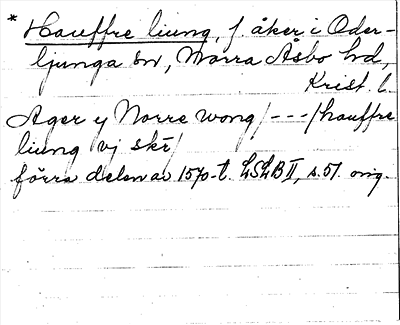 * Hauffre liung, f. åker i Oder-
ljunga sn, Norra Åsbo hd,
Krist. l.
Ager y Norre wong/---/hauffre
liung vj skr/
förra delen av 1570-t. LSLB II, s. 51. orig.